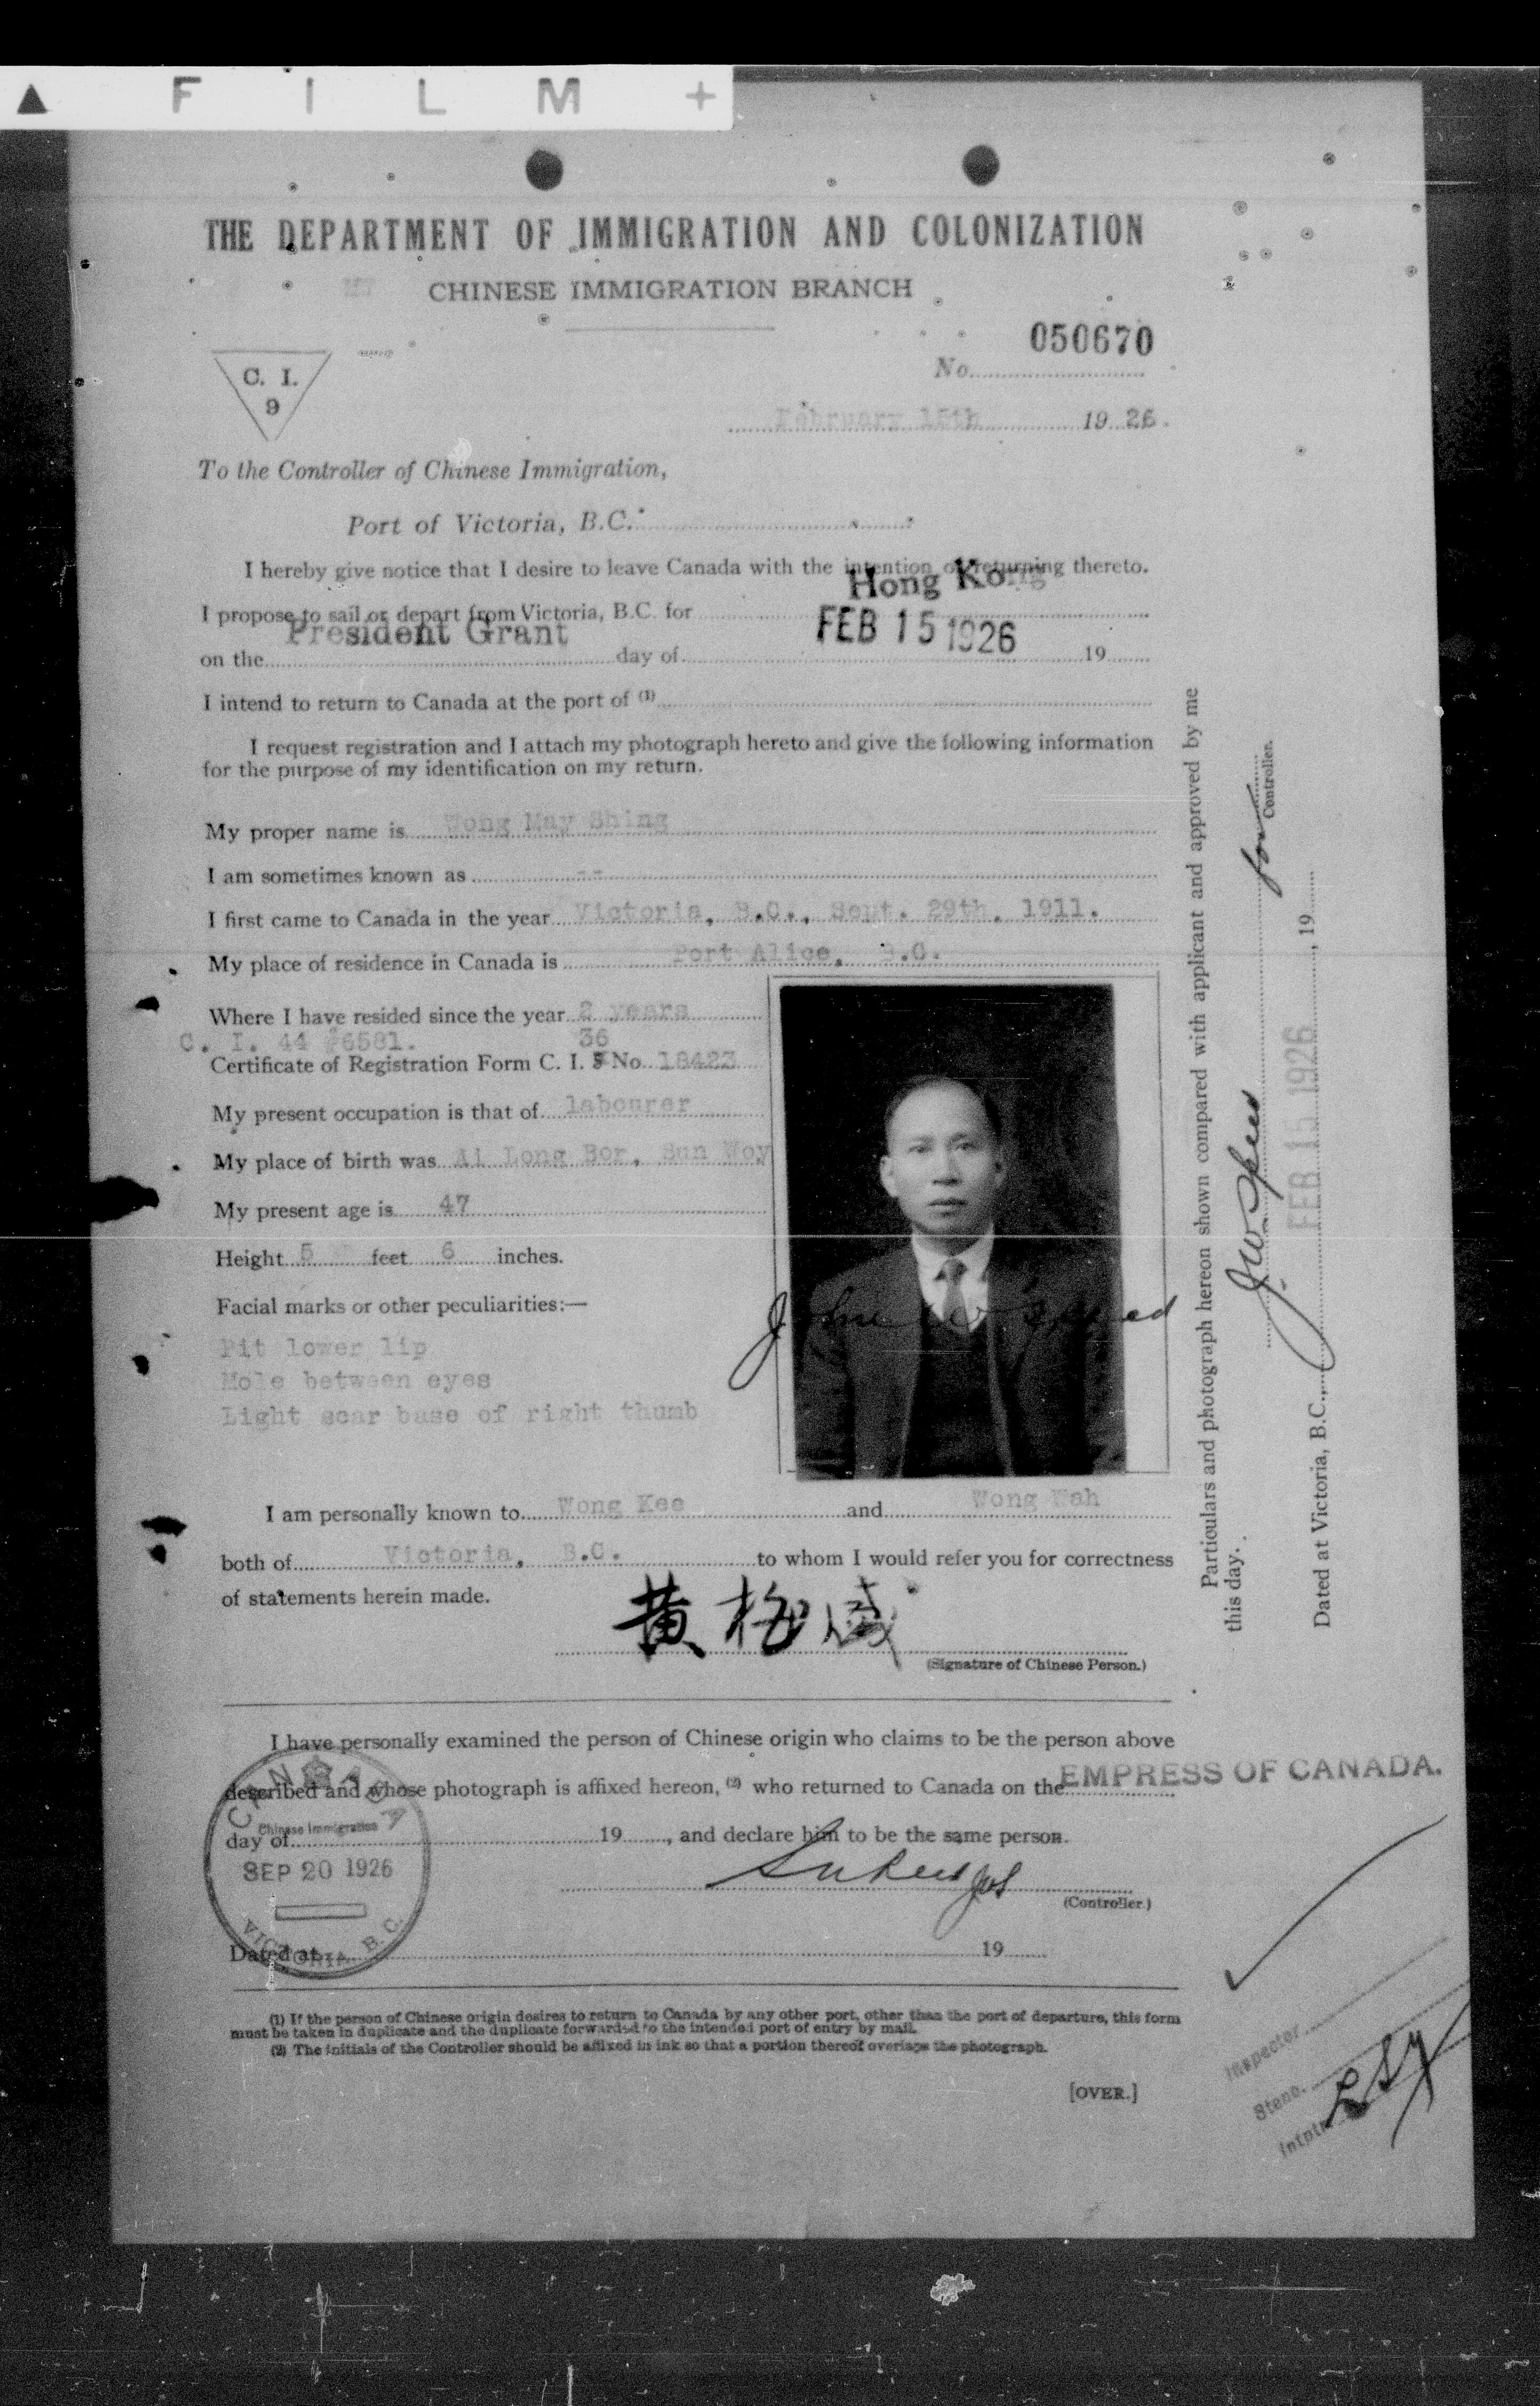 ▲ F I L M +
THE DEPARTMENT OF IMMIGRATION AND COLONIZATION
CHINESE IMMIGRATION BRANCH
050670
No.
C. I.
9
February 15th 1926.
To the Controller of Chinese Immigration,
Port of Victoria, B.C.
I hereby give notice that I desire to leave Canada with the intention of returning thereto.
Hong Kong
I propose to sail or depart from Victoria, B.C. for
President Grant FEB 15 1926
on the day of 19
I intend to return to Canada at the port of (1)
I request registration and I attach my photograph hereto and give the following information
for the purpose of my identification on my return.
My proper name is Wong May Shing
I am sometimes known as --
I first came to Canada in the year Victoria, B.C., Sept. 29th, 1911.
My place of residence in Canada is Port Alice, B.C.
Where I have resided since the year 2 years
C. I. 44 #6581. 36
Certificate of Registration Form C. I. 5 No. 18423
My present occupation is that of labourer
My place of birth was Ai Long Bor, Sun Woy
My present age is 47
Height 5 feet 6 inches.
Facial marks or other peculiarities:—
Pit lower lip
Mole between eyes
Light scar base of right thumb
I am personally known to Wong Kee and Wong Wah
both of Victoria, B.C. to whom I would refer you for correctness
of statements herein made.
黄梅
(Signature of Chinese Person.)
I have personally examined the person of Chinese origin who claims to be the person above
described and whose photograph is affixed hereon, (2) who returned to Canada on the EMPRESS OF CANADA.
day of 19 , and declare him to be the same person.
(Controller.)
Dated at 19
CANADA
Chinese Immigration
SEP 20 1926
VICTORIA B.C.
(1) If the person of Chinese origin desires to return to Canada by any other port, other than the port of departure, this form
must be taken in duplicate and the duplicate forwarded to the intended port of entry by mail.
(2) The initials of the Controller should be affixed in ink so that a portion thereof overlaps the photograph.
[OVER.]
Particulars and photograph hereon shown compared with applicant and approved by me
this day.
for
Controller.
Dated at Victoria, B.C., FEB 15 1926, 19
Inspector
Steno.
Intptr